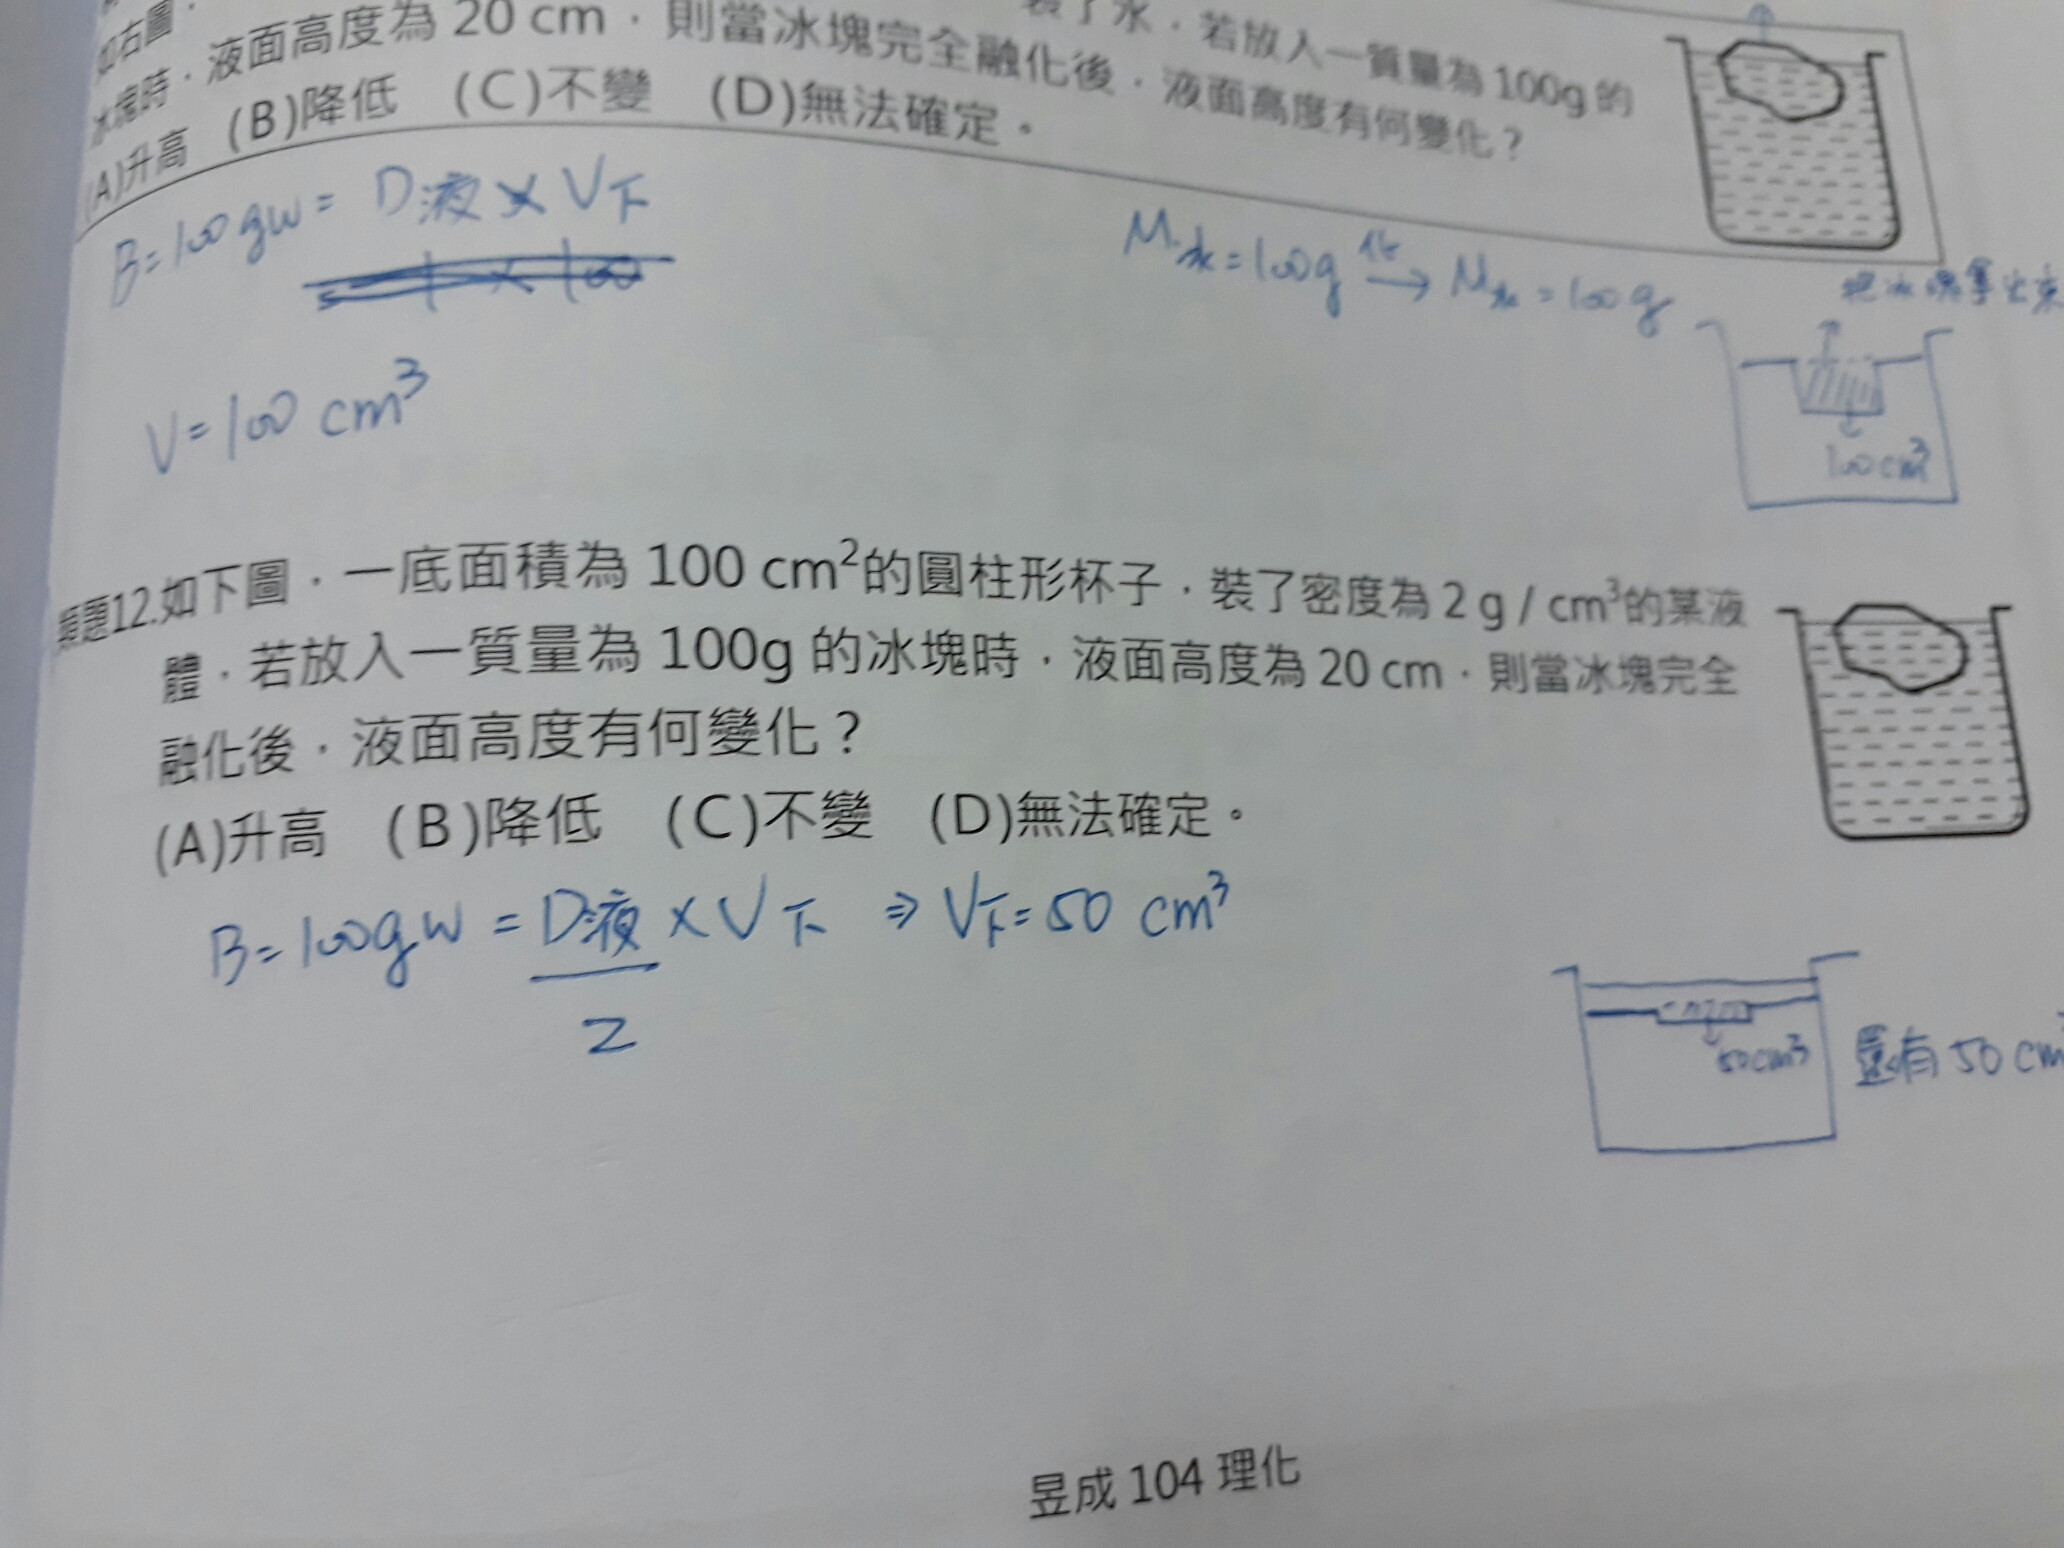 如右圖，
裝了水，若放入一質量為 100g 的
冰塊時，液面高度為 20 cm，則當冰塊完全融化後，液面高度有何變化？
(A)升高 (B)降低 (C)不變 (D)無法確定。
B=100gw = D液 x V下
V=100 cm³
M冰=100g 化→ M水=100g
把冰塊拿出來
100cm³
類題12.如下圖，一底面積為 100 cm²的圓柱形杯子，裝了密度為 2 g / cm³的某液
體，若放入一質量為 100g 的冰塊時，液面高度為 20 cm，則當冰塊完全
融化後，液面高度有何變化？
(A)升高 (B)降低 (C)不變 (D)無法確定。
B=100gw = D液 x V下 ⇒ V下=50 cm³
2
50cm³
還有 50 cm
昱成 104 理化